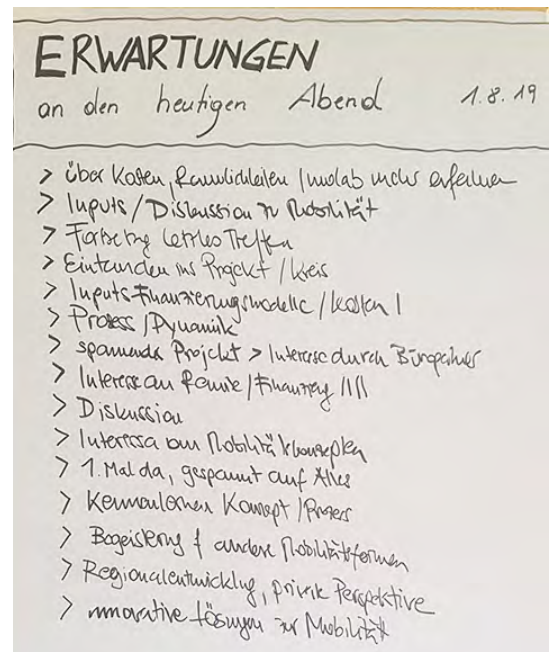 ERWARTUNGEN
an den heutigen Abend 1.8.19
> über Kosten, Räumlichkeiten / mehr erfahren
> Inputs / Diskussion zu Mobilität
> Fortsetzung letztes Treffen
> Eintauchen ins Projekt / Kreis
> Inputs Finanzierungsmodelle / Kosten I
> Prozess / Dynamik
> spannendes Projekt > Interesse durch
> Interesse an Räume / Finanzierung IIII
> Diskussion
> Interesse am Mobilitätskonzepten
> 1. Mal da, gespannt auf Alles
> Kennenlernen Konzept / Prozess
> Begeisterung f andere Mobilitätsformen
> Regionalentwicklung, private Perspektive
> innovative Lösungen zur Mobilität